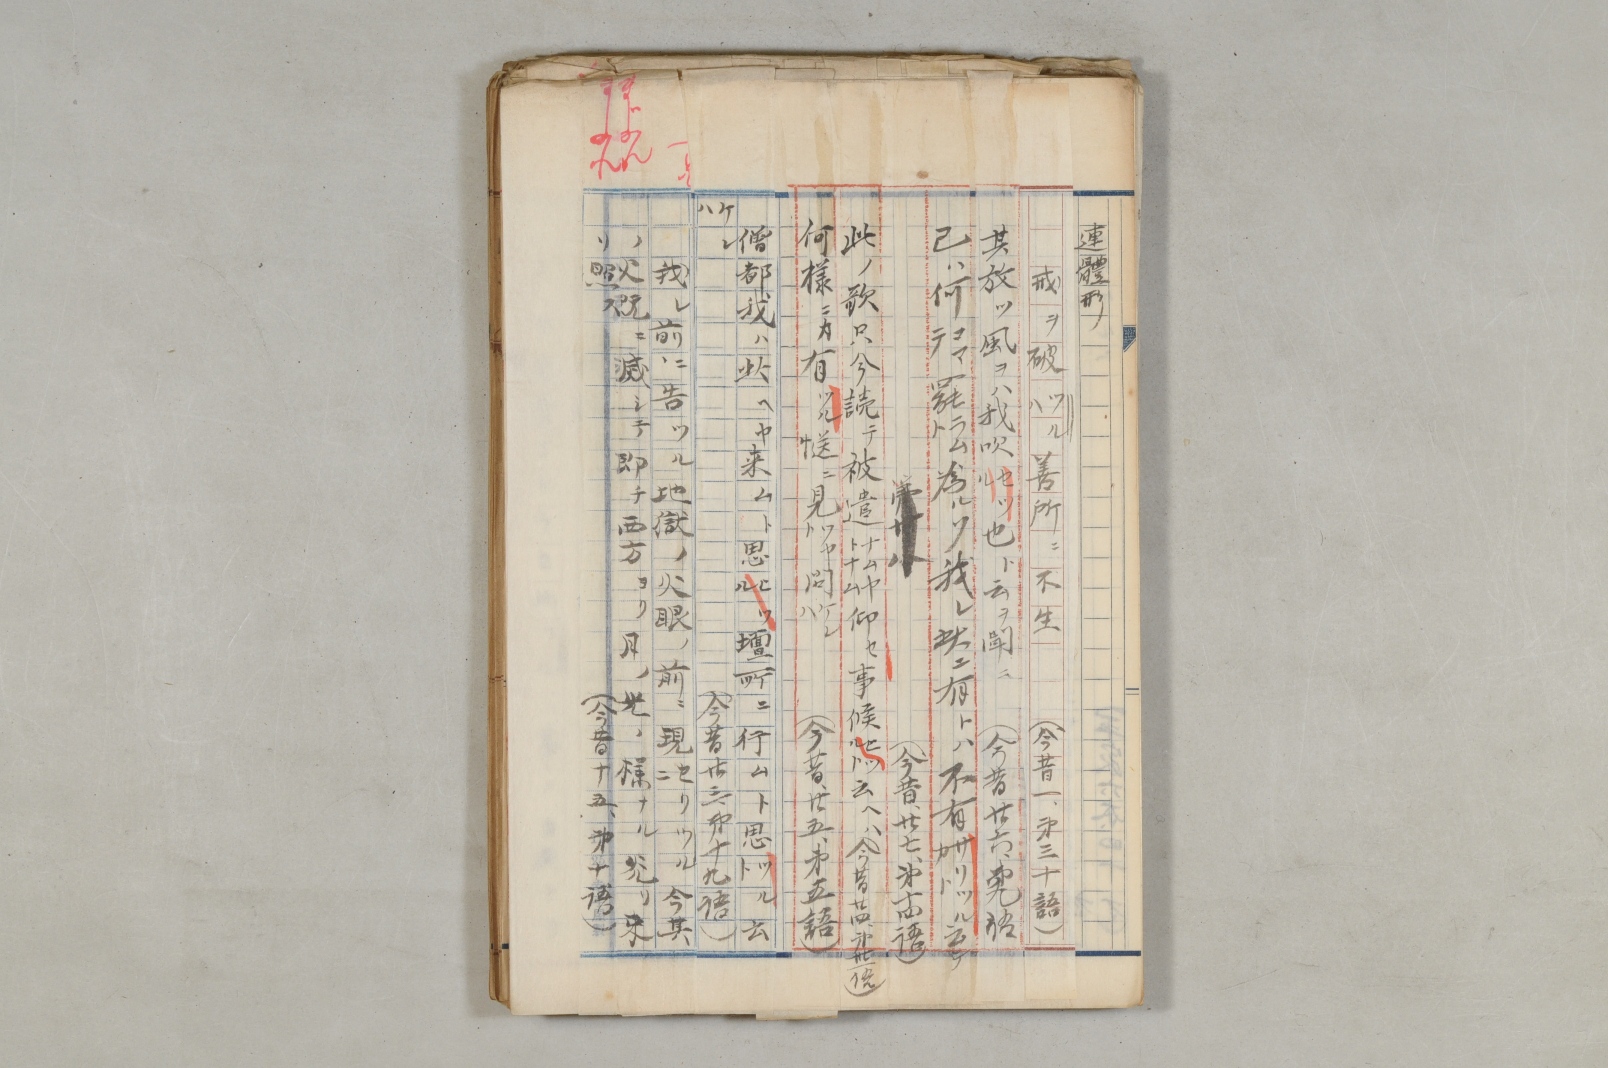 連體形
戒ヲ破ツル善所ニ不生 (今昔一、第三十語)
其放ツ風ヲハ我吹セツル也ト云ヲ聞ニ (今昔廿六、第九語)
己ハ何テコマ罷ラム為ルソ我レ此ニ有トハ不有サリツルカト云テ
(今昔、廿七、第十四語)
此ノ歌只今読テ被遣ナムヤトナム仰セ事候ヒツルト云ヘハ (今昔廿四、第卅一語)
何様ニカ有ツル慥ニ見ツヤト問ケレハ (今昔、廿五、第五語)
僧都我ハ此ヘヤ来ムト思ヒツル壇所ニ行ムト思ツルト云
ケレハ (今昔廿三、第十九語)
我レ前ニ告ツル地獄ノ火眼ノ前ニ現ニセリツル今其
ノ火既ニ滅シテ即チ西方ヨリ月ノ光ノ様ナル光リ来
リ照ス (今昔十五、第十語)